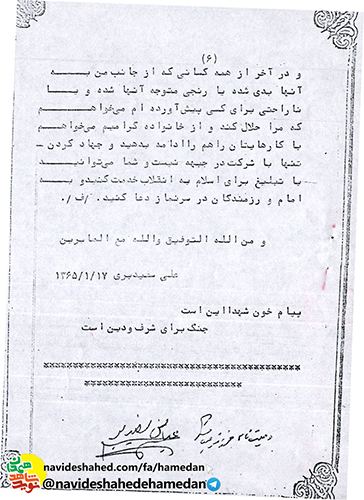 (۶)
و در آخر از همه کسانی که از جانب من بــه
آنها بدی شده یا رنجی متوجه آنها شده و یــا
ناراحتی برای کسی پیش آورده ام می‌خواهــم
که مرا حلال کنند و از خانواده گرامیم می‌خواهم
با کارهایتان راهم را ادامه بدهید و جهاد کردن ـ
تنها با شرکت در جبهه نیست و شما می‌توانیــد
با تبلیغ برای اسلام به انقلاب خدمت کنید و بــه
امام و رزمندگان در سر نماز دعا کنید. /ف/.
و من الله التوفیق والله مع الصابرین
علی سعیدیری ۱۳۶۵/۱/۱۷
پیام خون شهدا این است
جنگ برای شرف و دین است
××××××××××××××××××××××××××××××××××××××××
××××××××××××××××××××××
وصیت نامه
navideshahed.com/fa/hamedan
@navideshahedehamedan